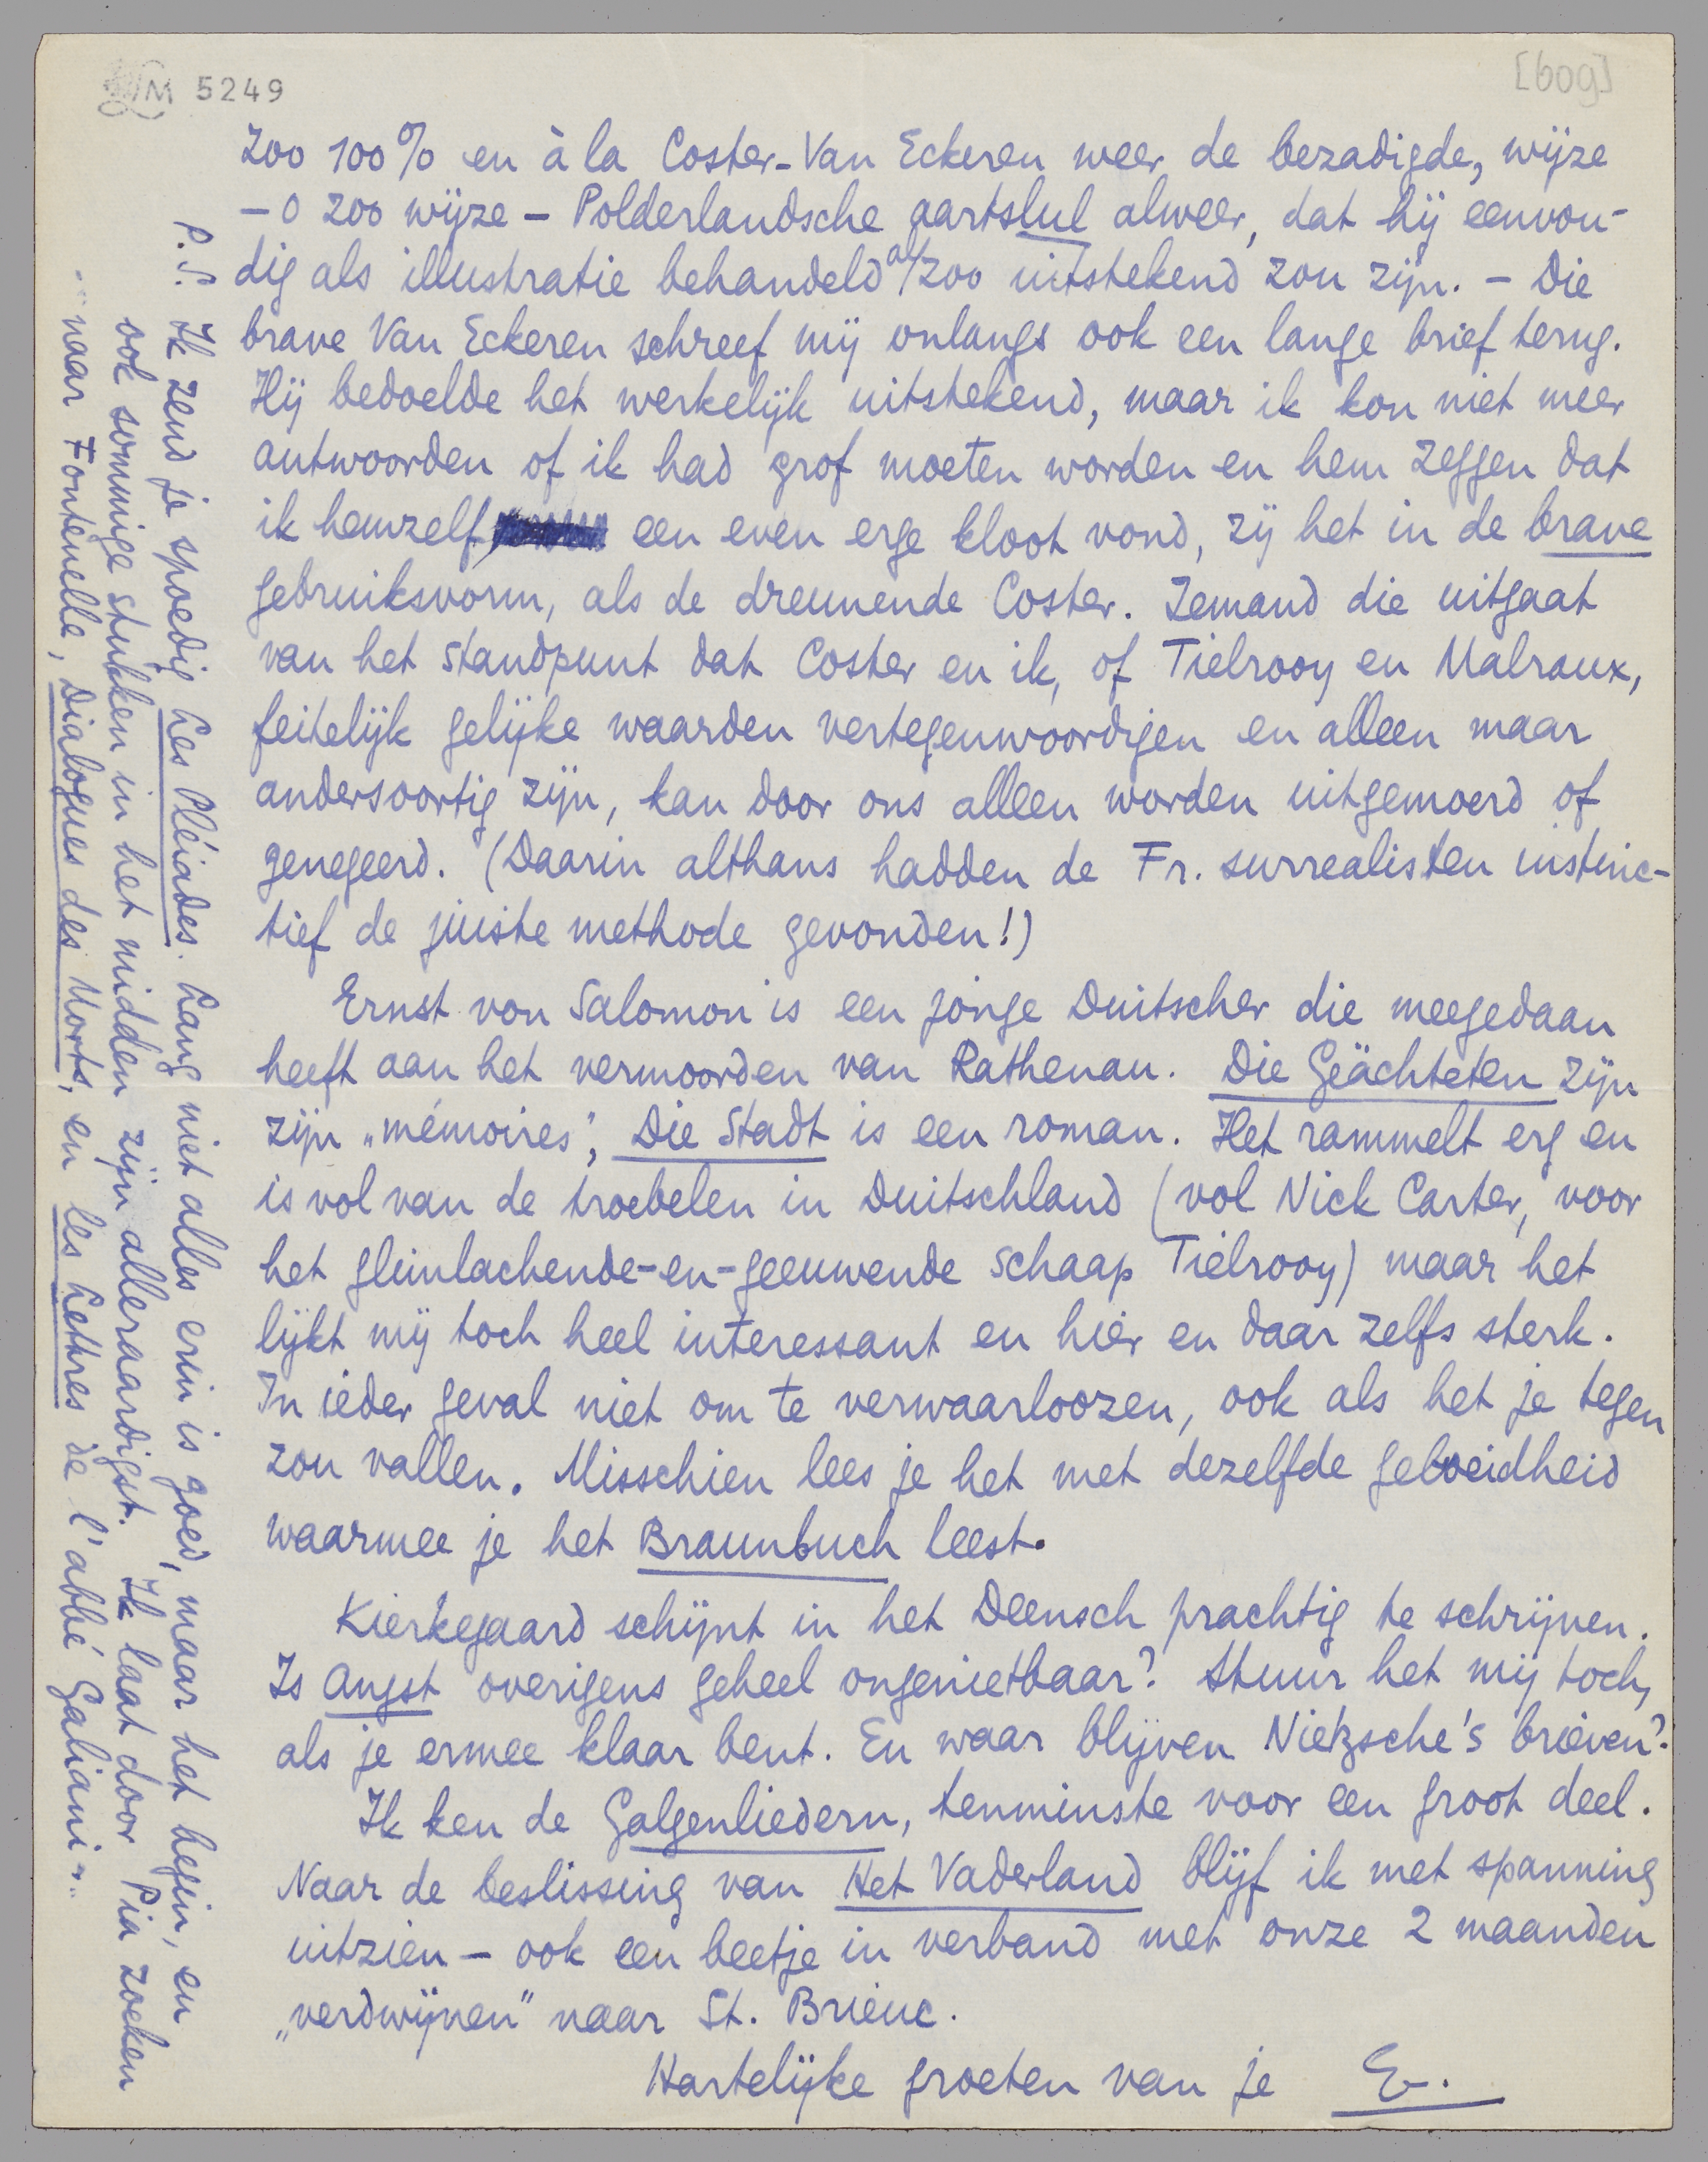 M 5249
[609]
zoo 100% en à la Coster-Van Eckeren weer de bezadigde, wijze
– o zoo wijze – Polderlandsche aartslul alweer, dat hij eenvou-
dig als illustratie behandeld al zoo uitstekend zou zijn. – Die
brave Van Eckeren schreef mij onlangs ook een lange brief terug.
Hij bedoelde het werkelijk uitstekend, maar ik kon niet meer
antwoorden of ik had grof moeten worden en hem zeggen dat
ik hemzelf een even erge kloot vond, zij het in de brave
gebruiksvorm, als de dreunende Coster. Iemand die uitgaat
van het standpunt dat Coster en ik, of Tielrooy en Malraux,
feitelijk gelijke waarden vertegenwoordigen en alleen maar
andersoortig zijn, kan door ons alleen worden uitgemoord of
genegeerd. (Daarin althans hadden de Fr. surrealisten instinc-
tief de juiste methode gevonden!)
Ernst von Salomon is een jonge Duitscher die meegedaan
heeft aan het vermoorden van Rathenau. Die Geächteten zijn
zijn „mémoires”, Die Stadt is een roman. Het rammelt erg en
is vol van de troebelen in Duitschland (vol Nick Carter, voor
het glimlachende-en-geeuwende schaap Tielrooy) maar het
lijkt mij toch heel interessant en hier en daar zelfs sterk.
In ieder geval niet om te verwaarloozen, ook als het je tegen
zou vallen. Misschien lees je het met dezelfde geboeidheid
waarmee je het Braunbuch leest.
Kierkegaard schijnt in het Deensch prachtig te schrijven.
Is Angst overigens geheel ongenietbaar? Stuur het mij toch,
als je ermee klaar bent. En waar blijven Nietzsche's brieven?
Ik ken de Galgenliedern, tenminste voor een groot deel.
Naar de beslissing van Het Vaderland blijf ik met spanning
uitzien – ook een beetje in verband met onze 2 maanden
„verdwijnen” naar St. Brieuc.
Hartelijke groeten van je E.
P.S. Ik zend je spoedig Les Pléiades. Lang niet alles erin is goed, maar het begin, en
ook sommige stukken in het midden zijn alleraardigst. Ik laat door Pia zoeken
naar Fontenelle, Dialogues des Morts, en les Lettres de l'abbé Galiani.